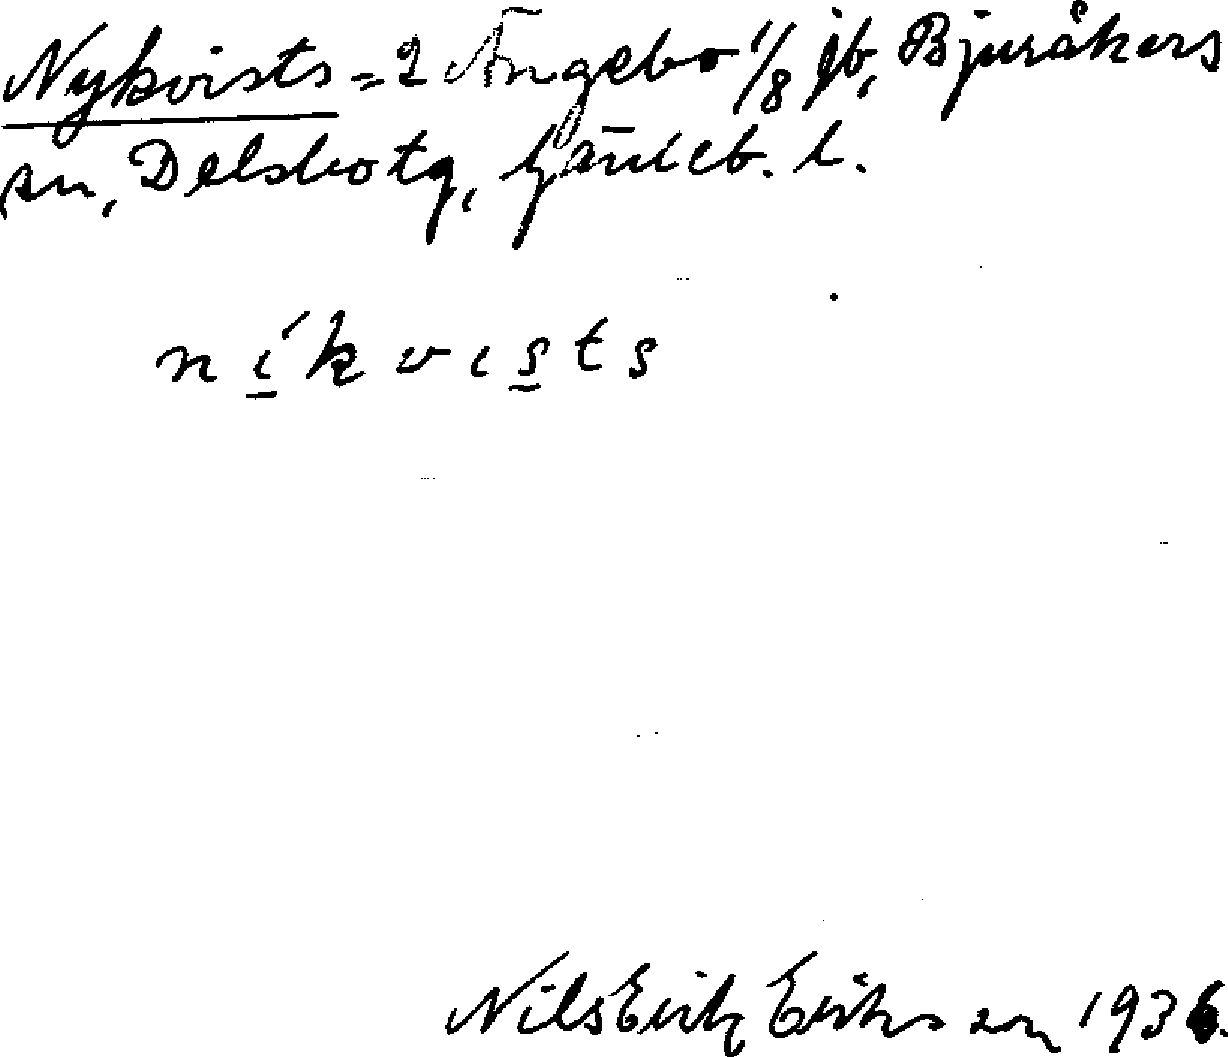 Nykvists = 2 Ängebo 1/8 jb, Bjuråkers
sn, Delsbo tg, Gävleb. l.
níkvists
Nils Erik Eriksson 1936.